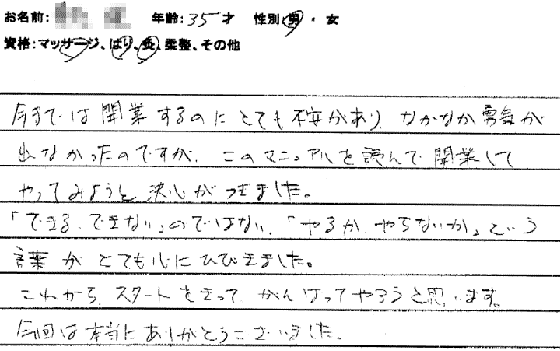 お名前: 年齢:35才 性別:男・女
資格:マッサージ、はり、灸、柔整、その他
今までは開業するのにとても不安があり なかなか勇気が
出なかったのですが、このマニュアルを読んで開業して
やってみようと決心がつきました。
「できる、できない」のではない、「やるか やらないか」という
言葉がとても心にひびきました。
これから、スタートをきって、がんばってやろうと思います。
今回は本当にありがとうございました。